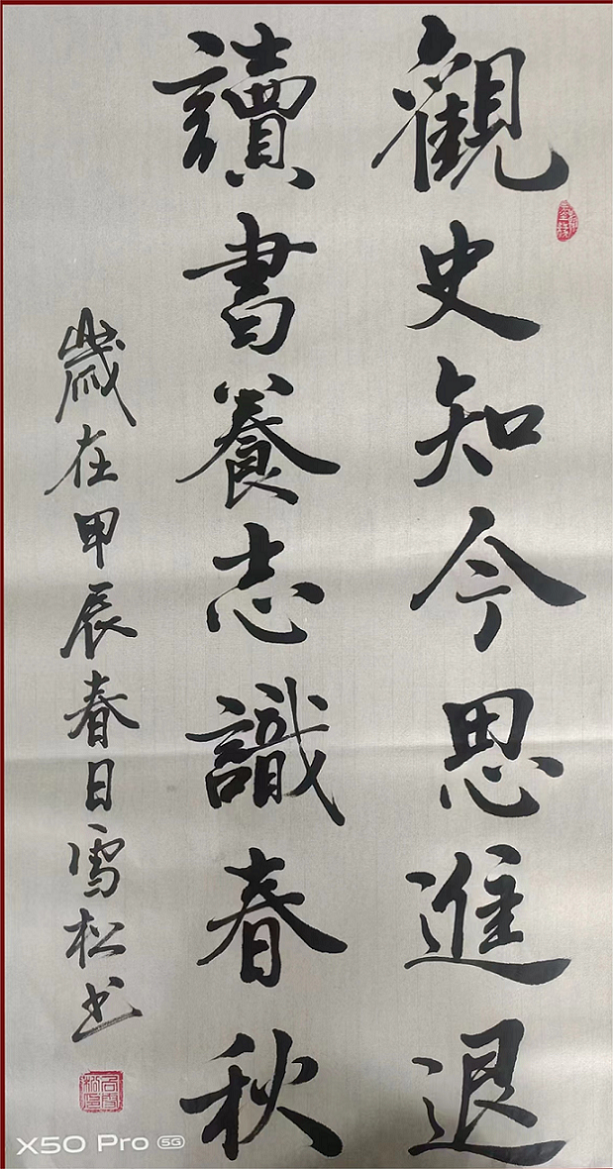 觀史知今思進退
讀書養志識春秋
歲在甲辰春日雪松书
X50 Pro 5G